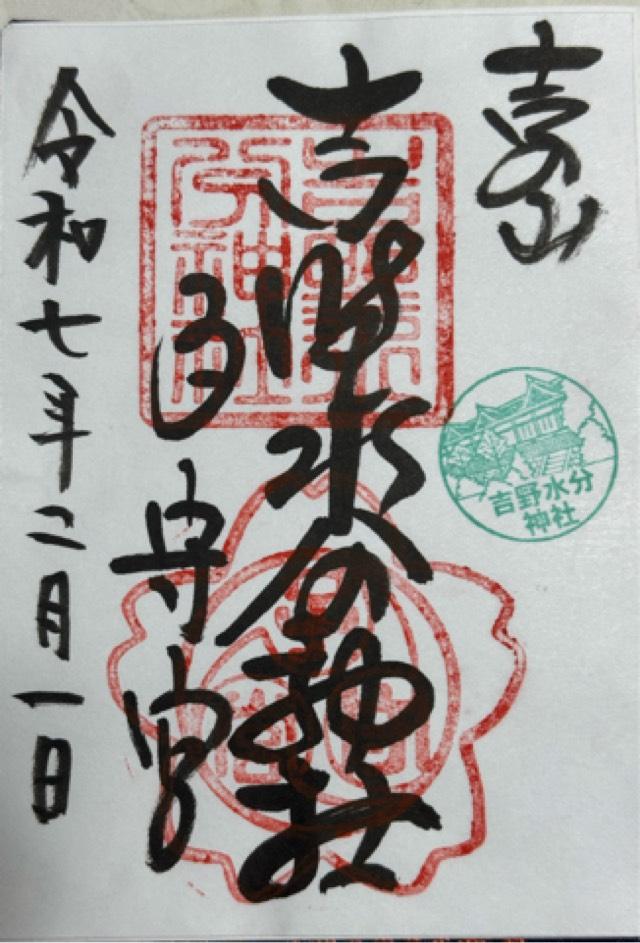 吉野山
吉野水分神社
子守宮
令和七年二月一日
吉野水分
神社
吉野水
分神社